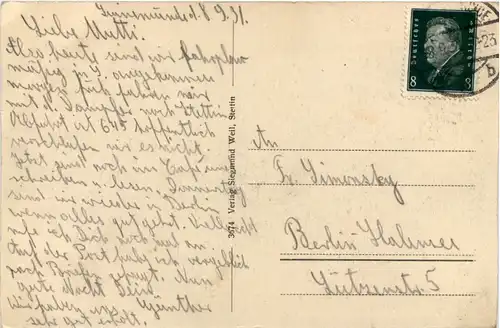 Swinemünde, d. 8.9.31.
Liebe Mutti!
Also heute sind wir fahrplan
mäßig in S. angekommen
morgen früh fahren wir
mit d. Dampfer nach Stettin
Abfahrt ist 6 45 hoffentlich
verschlafen wir es nicht.
Jetzt sind noch im Café und
schreiben u. lesen. Donnerstag
sind wir wieder in Berlin
wenn alles gut geht. Vielleicht
rufe ich Dich noch mal an
Auf der Post hab ich vergeblich
nach Briefen gefragt. Nun
gute Nacht Dein
Günther
Wir haben uns
sehr gut erholt.
3674 Verlag Siegmund Weil, Stettin
Deutsches Reich
8 8
b
An
Fr. Simonsky
Berlin-Halensee
Lützenstr. 5